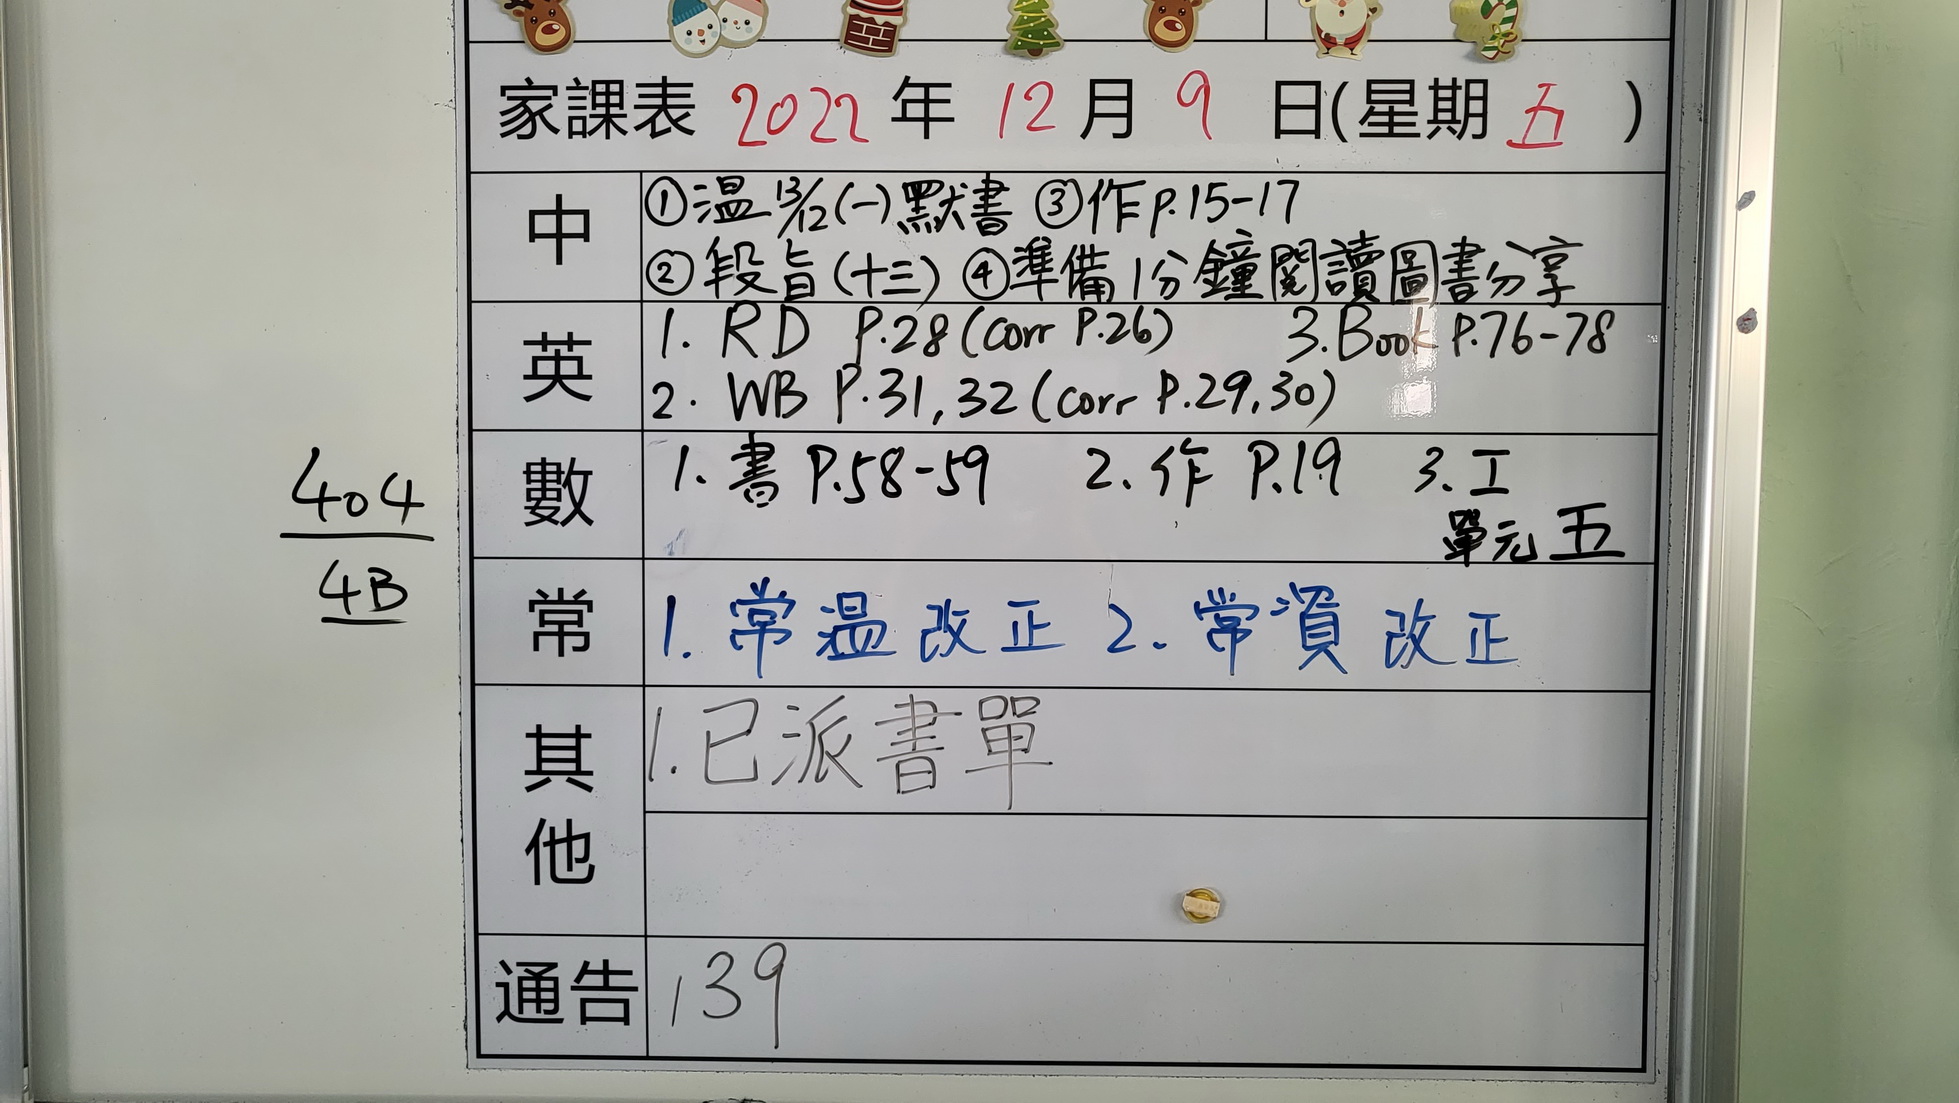 家課表 2022 年 12 月 9 日(星期 五 )
中
①溫 13/12 (一) 默書 ③作 P.15-17
②段旨 (十三) ④準備 1分鐘閱讀圖書分享
英
1. RD P.28 (corr P.26) 3. Book P.76-78
2. WB P.31, 32 (corr P.29, 30)
數
1. 書 P.58-59 2. 作 P.19 3. 工
單元 五
404
4B
常
1. 常溫 改正 2. 常資 改正
其他
1. 已派書單
通告
139